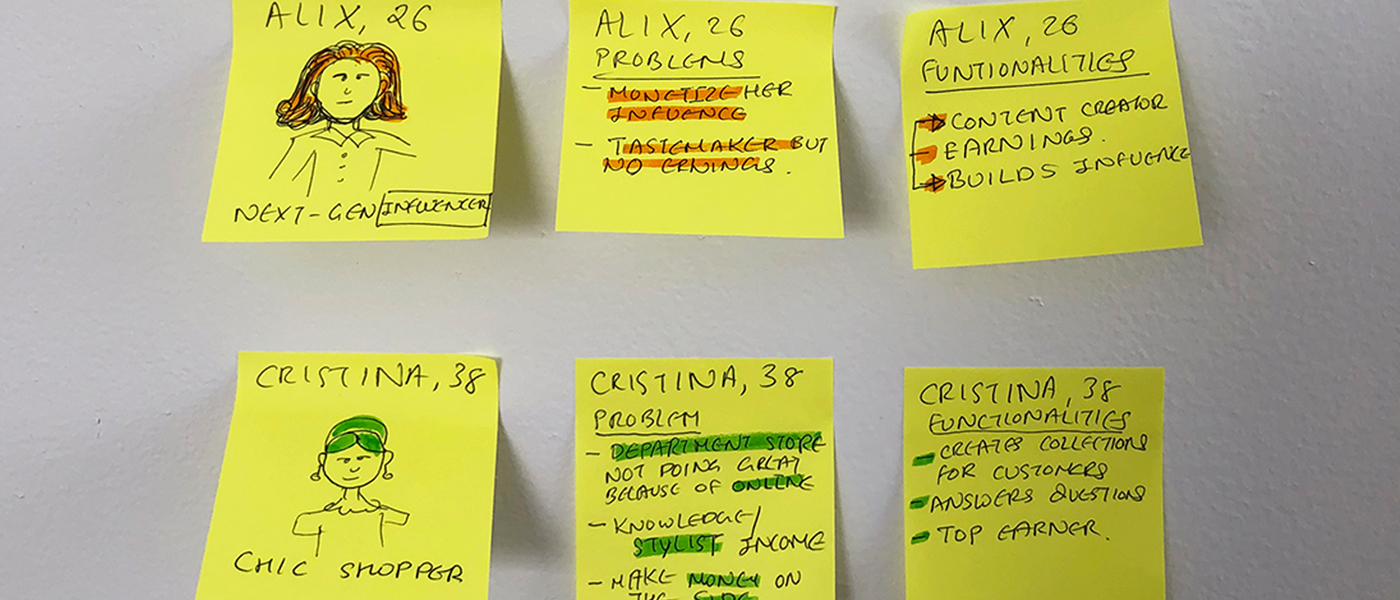 ALIX, 26
NEXT-GEN INFLUENCER
ALIX, 26
PROBLEMS
- MONETIZE HER
INFUENCE
- TASTEMAKER BUT
NO ERNINGS.
ALIX, 26
FUNTIONALITIES
CONTENT CREATOR
- EARNINGS.
BUILDS INFUENCE
CRISTINA, 38
CHIC SHOPPER
CRISTINA, 38
PROBLEM
- DEPARTMENT STORE
NOT DOING GREAT
BECAUSE OF ONLINE
- KNOWLEDGE/
STYLIST INCOME
- MAKE MONEY ON
THE SIDE
CRISTINA, 38
FUNCTIONALITIES
- CREATES COLLECTIONS
FOR CUSTOMERS
- ANSWERS QUESTIONS
- TOP EARNER.